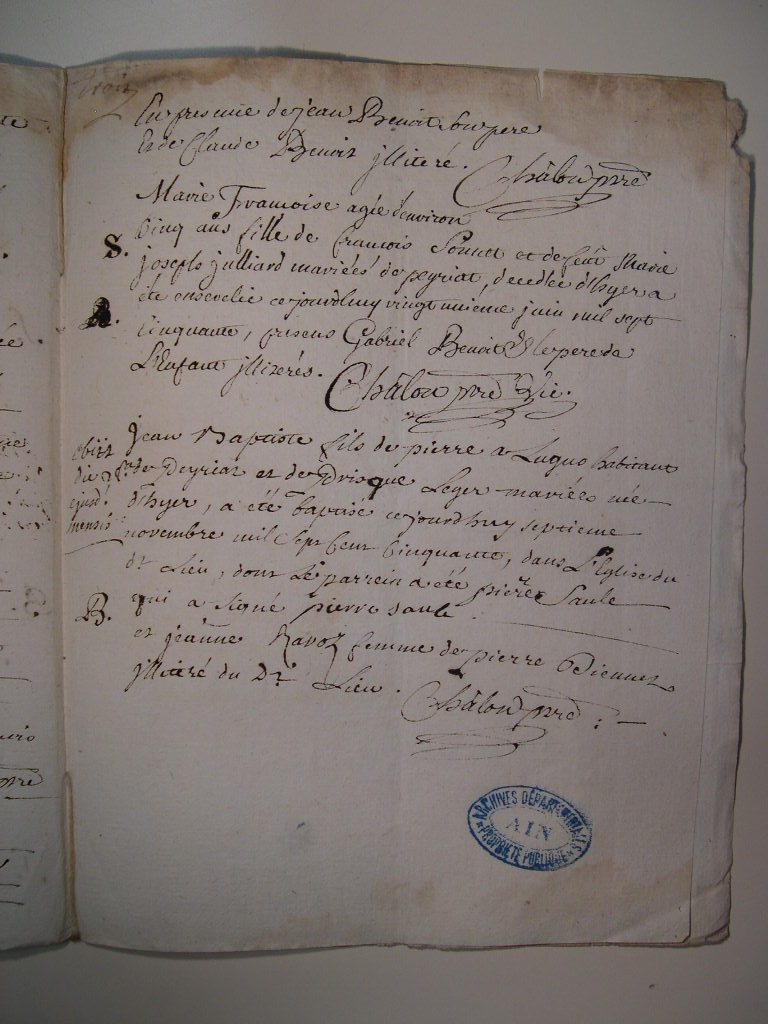 trois
En presence de jean Benoit son pere
Et de Claude Benoit jlliteré. Châlon pre
Marie Francoise agée d'environ
S. Cinq ans fille de francois Sonnet et de feüe Marie
joseph julliard mariées de peyriat, decedée d'hyer a
A. été ensevelie ce jourdhuy vingt unieme juin mil sept
Cinquante, presens Gabriel Benoit & le pere de
L'Enfant jlliterés. Châlon pre Vic.
jean Baptiste fils de pierre a Lugus habitant
obiit die ejusd. mensis
de Peyriat et de Drisque Leger mariées née
d'hyer, a été baptisé ce jourdhuy septieme
novembre mil Sept Cent Cinquante, dans L'Eglise du
dt Lieu, dont Le parrein a été pierre Saule
B. qui a signé pierre saule
et jeanne Ravoz femme de pierre
jlliteré du Dt Lieu. Châlon pre
ARCHIVES DÉPARTEMENTALES
AIN
PROPRIÉTÉ PUBLIQUE